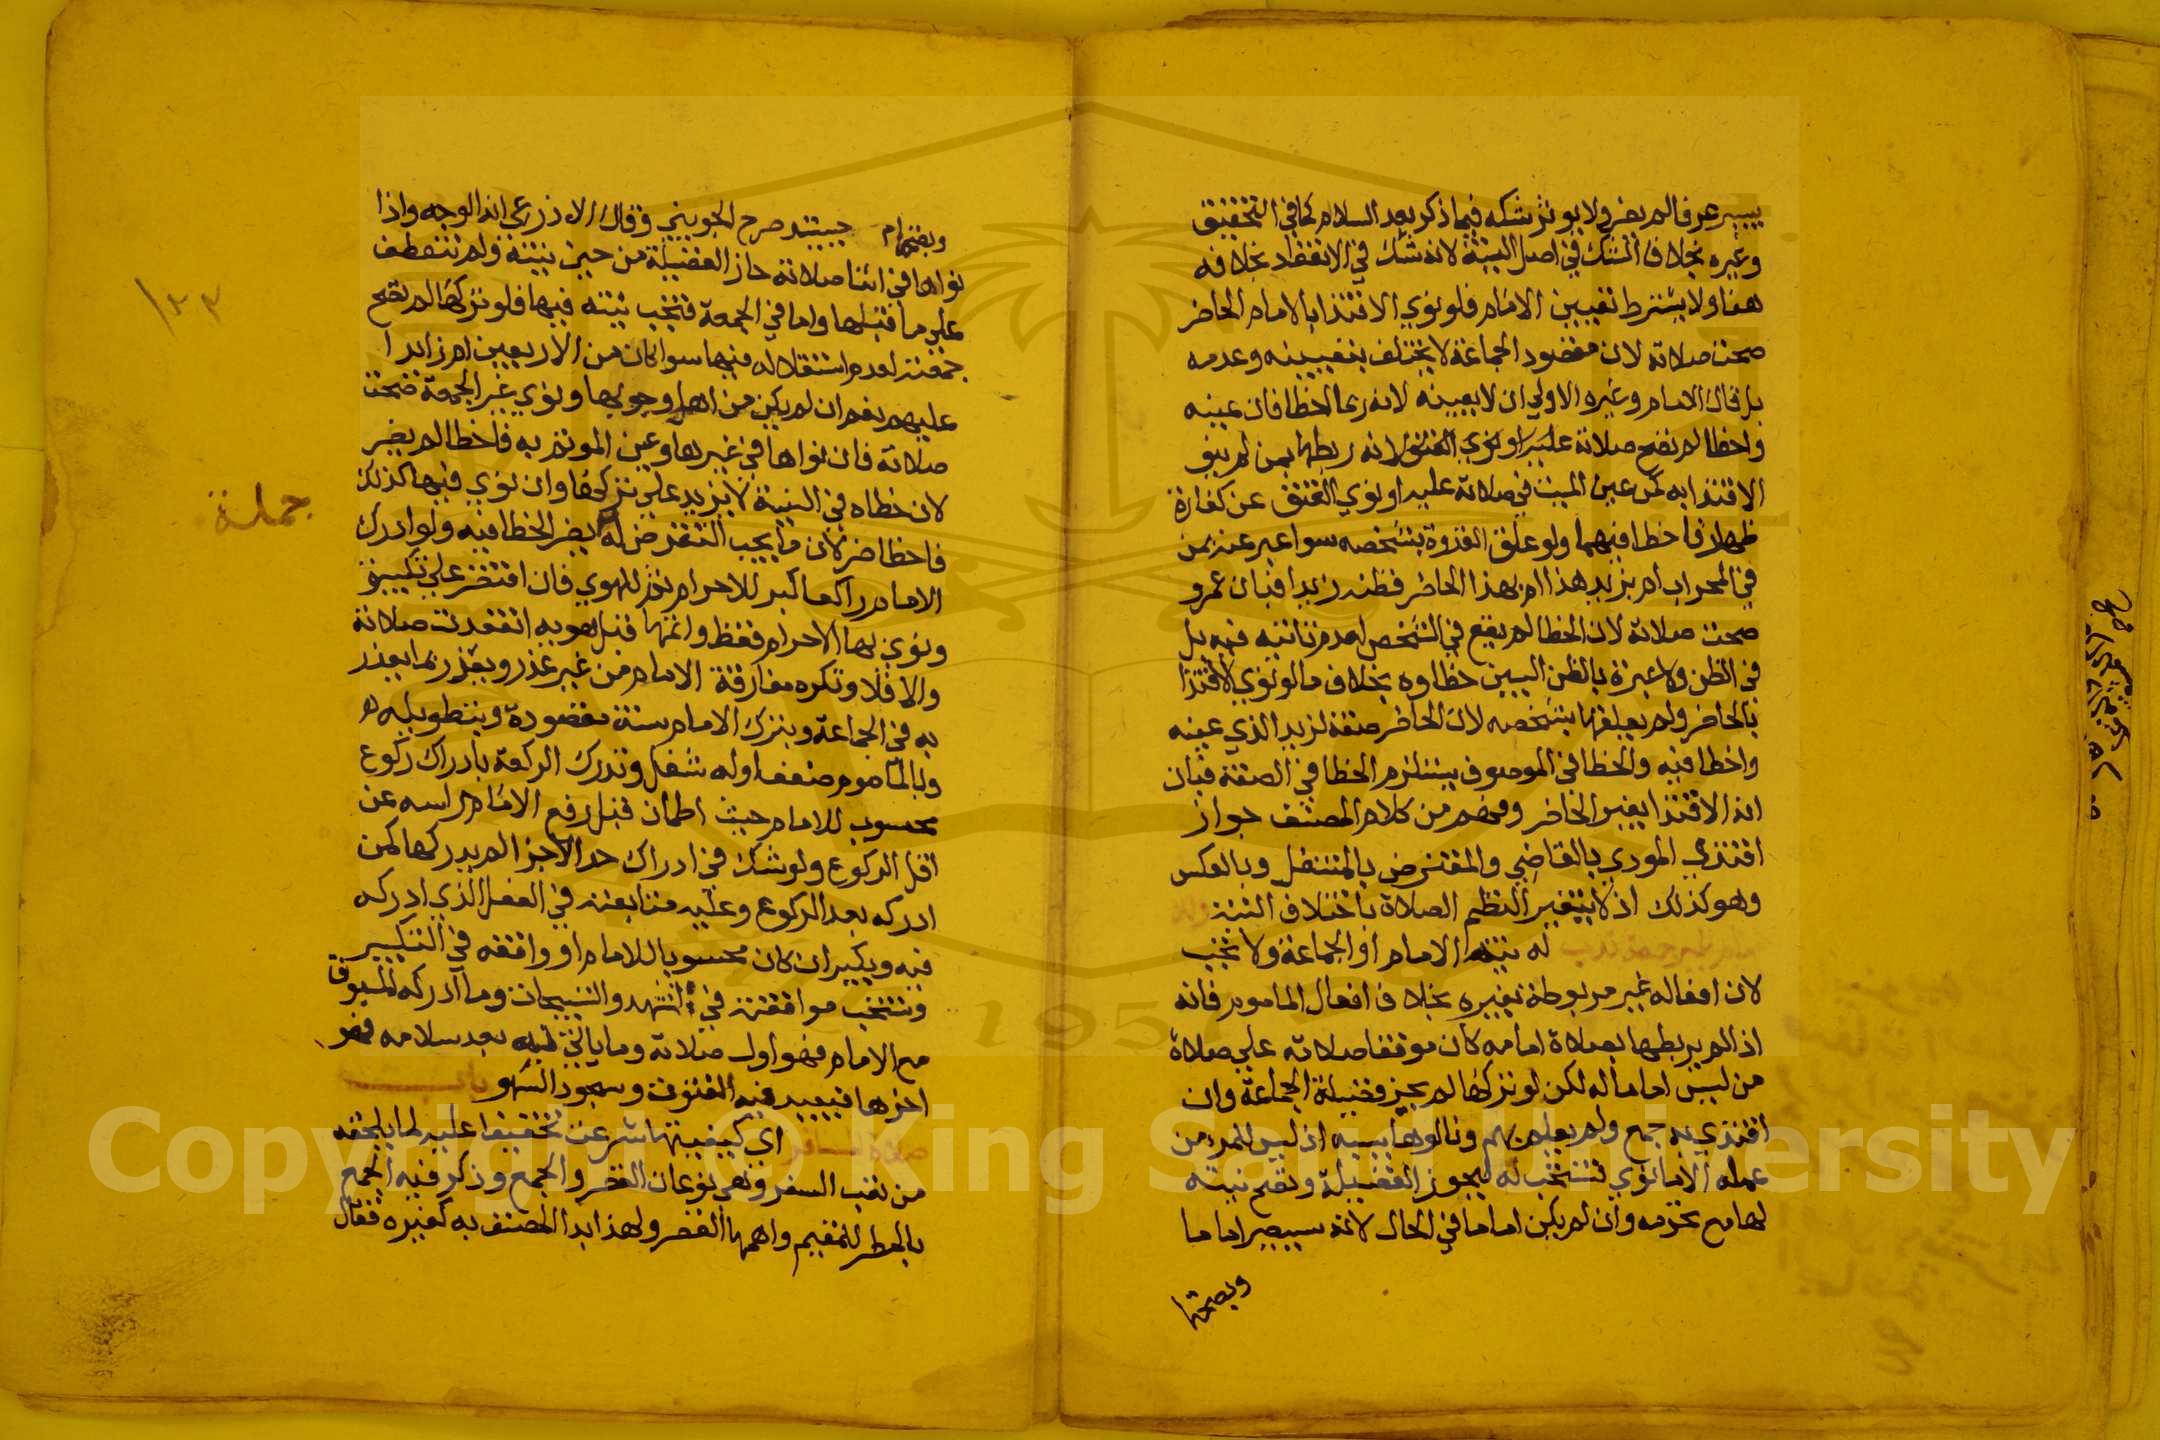 يسير عرفا لم يضر ولا يوثر شكه فيما ذكر بعد السلام كما في التحقيق
وغيره بخلاف الشك في اصل النية لانه شك في الانعقاد بخلافه
هنا ولا يشترط تعيين الامام فلو نوي الاقتدا بالامام الحاضر
صحت صلاته لان مقصود الجماعة لا يختلف بتعيينه وعدمه
بل قال الامام وغيره الاولي ان لا يعينه لانه ربما اخطا فان عينه
واخطا لم تصح صلاته لانه ربطها بمن لم ينو
الاقتدا به كمن عين الميت في صلاته عليه او نوي العتق عن كفارة
ظهار فاخطا فيهما ولو علق القدوة بشخصه سوا عبر عنه بمن
في المحراب ام بزيد هذا ام بهذا الحاضر فظنه زيدا فبان عمرو
صحت صلاته لان الخطا لم يقع في الشخص لعدم تاتيه فيه بل
في الظن ولا عبرة بالظن البين خطاوه بخلاف ما لو نوي الاقتدا
بالحاضر ولم يعلقها بشخصه لان الحاضر صفة لزيد الذي عينه
واخطا فيه والخطا في الموصوف يستلزم الخطا في الصفة فبان
انه الاقتدا بغير الحاضر وفهم من كلام المصنف جواز
اقتدي المودي بالقاضي والمفترض بالمتنفل وبالعكس
وهو كذلك اذ لا يتغير النظم الصلاة باختلاف النية
له نية الامام او الجماعة ولا تجب
لان افعاله غير مربوطة بغيره بخلاف افعال الماموم فانه
اذا لم يربطها بصلاة امامه كان موقفا صلاته علي صلاة
من ليس اماما له لكن لو تركها لم يحز فضيلة الجماعة وان
اقتدي به جمع ولم يعلم بهم ونالوها بسببه اذ ليس للمرء من
عمله الا ما نوي فتستحب له ليحوز الفضيلة وتصح نيته
لها مع تحرمه وان لم يكن اماما في الحال لانه سيصير اماما
وبصحتها
وبصحتها م حينئذ صرح الجويني وقال الاذرعي انه الوجه واذا
نواها في اثنا صلاته حاز الفضيلة من حين نيته ولم تنعطف
علي ما قبلها واما في الجمعة فتجب نيته فيها فلو تركها لم تصح
جمعته لعدم استقلاله فيها سوا كان من الاربعين ام زايدا
عليهم نعم ان لم يكن من اهل وجوبها ونوي غير الجمعة صحت
صلاته فان نواها في غيرها وعين الموتم به فاخطا لم يضر
لان خطاه في النية لا يزيد علي تركها وان نوي فيها كذلك
فاخطا ضر لان ما يجب التعرض له يضر الخطا فيه ولو ادرك
الامام راكعا كبر للاحرام ثم للهوي فان اقتصر علي تكبيرة
ونوي بها الاحرام فقط واتمها قبل هويه انعقدت صلاته
والا فلا وتكره مفارقة الامام من غير عذر ويعذر بما يعذر
به في الجماعة وبترك الامام سنة مقصودة وبتطويله
وبالماموم ضعف او له شغل وتدرك الركعة بادراك ركوع
محسوب للامام حيث اطمان قبل رفع الامام راسه عن
اقل الركوع ولو شك في ادراك حد الاجزا لم يدركها كمن
ادركه بعد الركوع وعليه متابعته في الفعل الذي ادركه
فيه ويكبر ان كان محسوبا للامام او وافقه في التكبير
وتستحب موافقته في التشهد والتسبيحات وما ادركه المسبوق
مع الامام فهو اول صلاته وما ياتي به بعد سلامه فهو
اخرها فيعيد فيه القنوت وسجود السهو باب
صلاة المسافر اي كيفيتها شرعت تخفيفا عليه لما يلحقه
من تعب السفر وهي نوعان القصر والجمع وذكر فيه الجمع
بالمطر للمقيم واهمها القصر ولهذا بدا المصنف به كغيره فقال
جملة
١٢٣
Copyright © King Saud University
1957